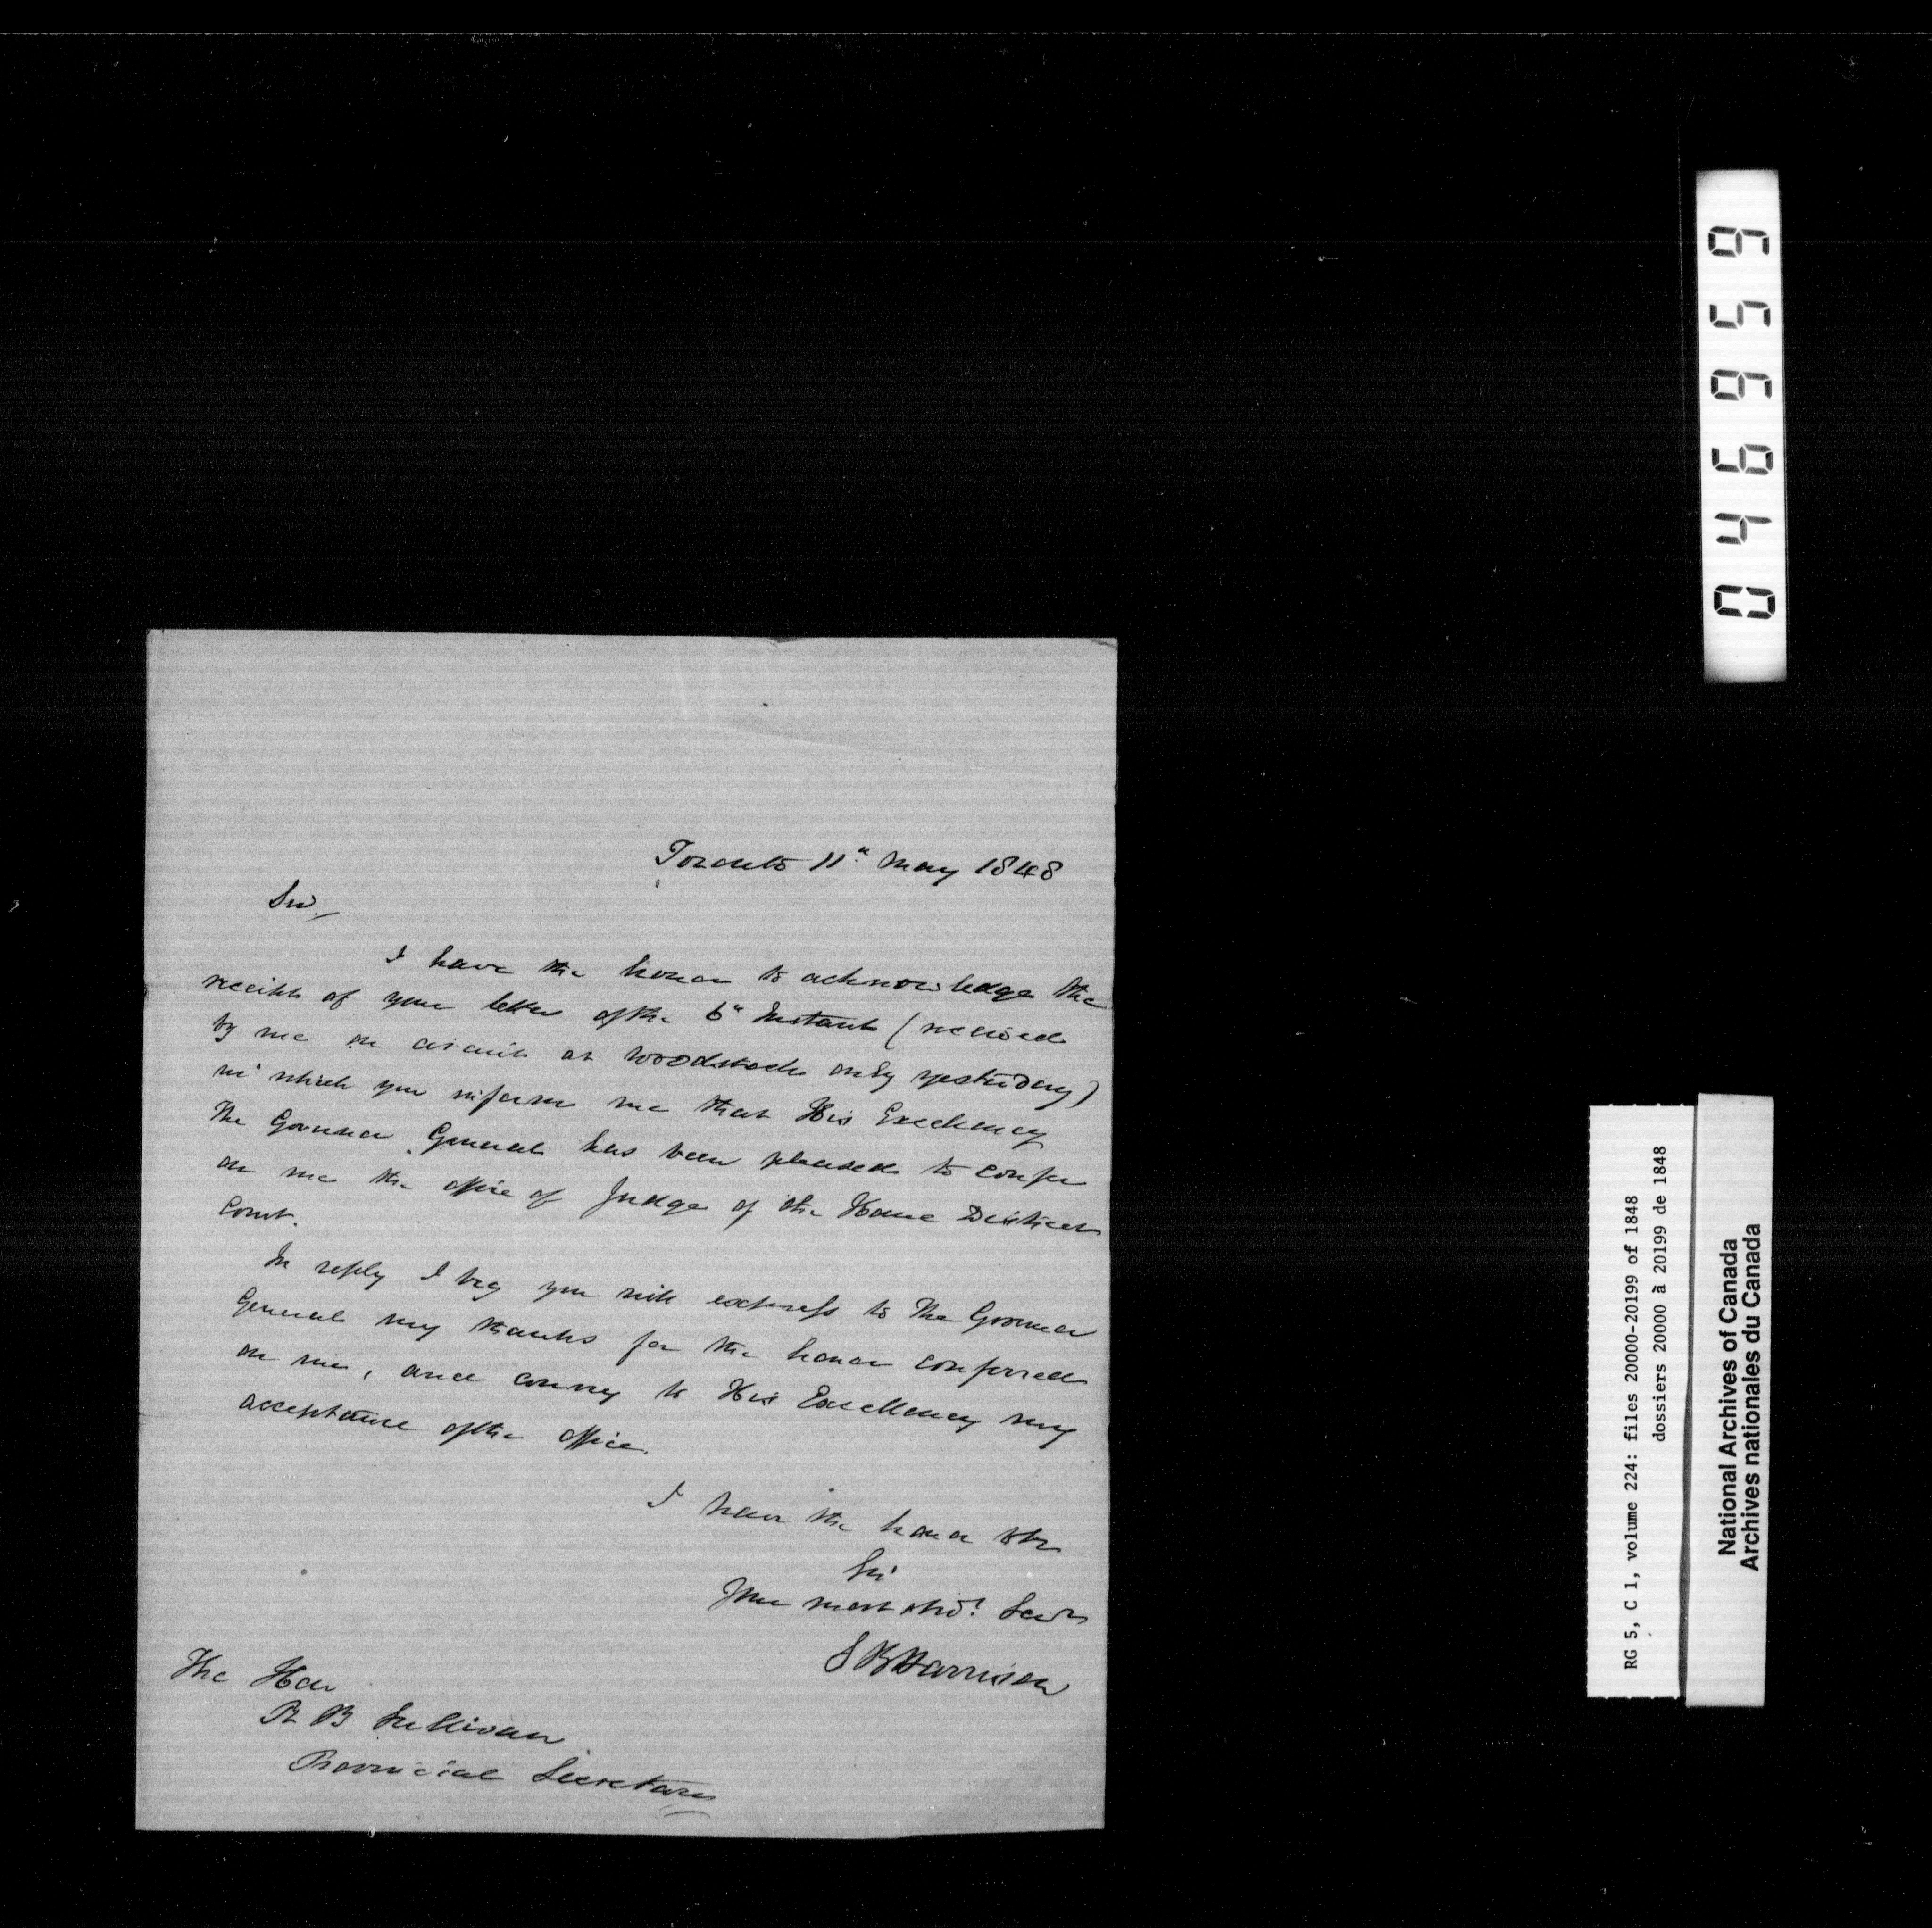 Toronto 11" May 1848
Sir,
I have the honor to acknowledge the
receipt of your letter of the 6" Instant (received
by me on circuit at Woodstock only yesterday)
in which you inform me that His Excellency
The Governor General has been pleased to confer
on me the office of Judge of the Home District
Court.
In reply I beg you will express to The Governor
General my thanks for the honor conferred
on me, and convey to His Excellency my
acceptance of the office.
I have the honor to be
Sir
Your most obdt Servt
S B Harrison
The Hon
R B Sullivan
Provincial Secretary
046959
RG 5, C 1, volume 224: files 20000-20199 of 1848
dossiers 20000 à 20199 de 1848
National Archives of Canada
Archives nationales du Canada